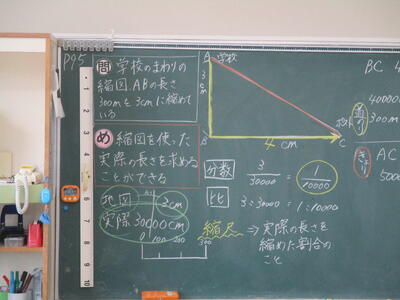 P95
問 学校のまわりの
縮図ABの長さ
300mを3cmに縮めて
いる
め 縮図を使った
実際の長さを求める
ことができる
地図 3cm
実際 30000cm
0 100 200 300
A 学校
3cm
B
4cm
C
分数
3/30000 = 1/10000
比
3:30000 = 1:10000
縮尺 ⇒ 実際の長さを
縮めた割合の
こと
BC 4
40000
300m
道のり
きょり
AC
5000
1
2
3
4
5
6
7
8
9
10